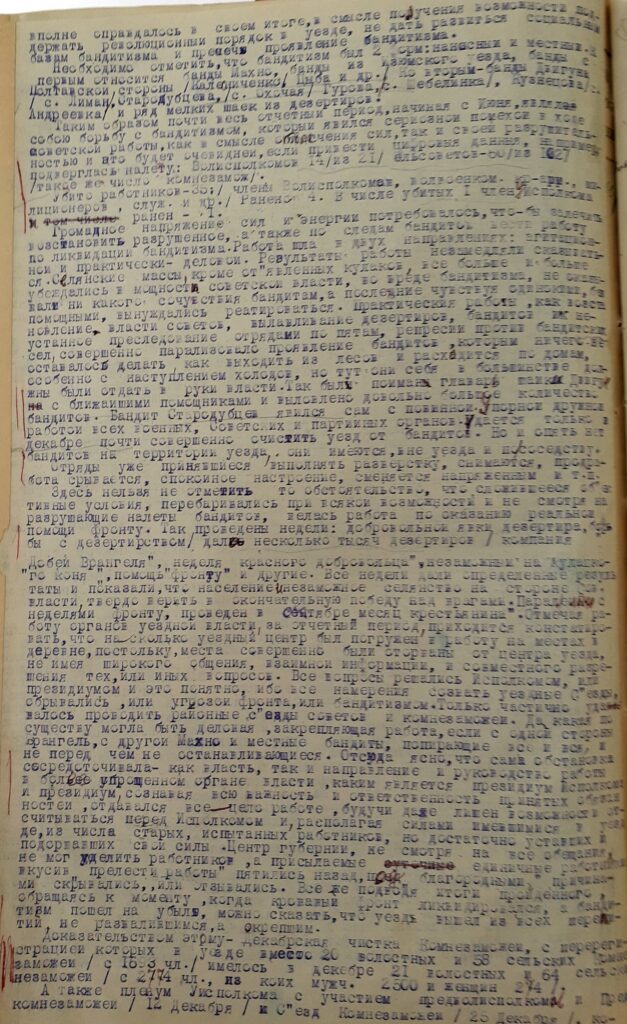 вполне оправдалось в своем итоге, в смысле получения возможности под-
держать революционный порядок в уезде, не дать развиться социальным
базам бандитизма и пресечь проявление бандитизма.
Необходимо отметить, что бандитизм был 2 форм: наносный и местный. К
первым относится банды Махно, банды из Изюмского уезда, банды с
Полтавской стороны /Калениченко/ Цыба и др./ Ко вторым-банды Двигуна
/с. Лиман, Стародубцева, /с. Охочая/ Гурова, с. Шебелинка/, Кузнецова/с.
Андреевка/ и ряд мелких шаек из дезертиров.
Таким образом почти весь отчетный период, начиная с Июня, являлся
собою борьбу с бандитизмом, который явился сериозной помехой в ходе
советской работы, как в смысле отвлечения сил, так и своей разрушитель-
ностью и это будет очевидней, если привести цифровыя данныя, например
подверглась налету: Волисполкомов 14/из 21/ сельсоветов-60/из 127
/такое же число комнезамож/.
Убито работников-35:/ члены Волисполкомов, волвоенком.
лиционеров, служ. и др./ Ранено 4. В числе убитых 1 член исполкома
и ранен - 1.
Громадное напряжение сил и энергии потребовалось, что-бы залечить
возстановить разрушенное, а также по следам бандитов вести работу
по ликвидации бандитизма. Работа шла в двух направлениях: агитацион-
ной и практически- деловой. Результаты работы незамедлили сказывать-
ся. Селянские массы, кроме от"явленных кулаков, все больше и больше
убеждались в мощности советской власти, во вреде бандитизма, не оказы-
вали ни какого сочувствия бандитам, а последние чувствуя одинокими, бес
помощными, вынуждались ретироваться. Практическия работы, как возста
новление, власти советов, вылавливание дезертиров, бандитов их не-
устанное преследование отрядами по пятам, репресии против бандитских
сел, совершенно парализовало проявление бандитов, которым ничего не
оставалось делать, как выходить из лесов и расходится по домам,
особенно с наступлением холодов, но тут они себя в большинстве дол-
жны были отдать в руки власти. Так были поймана главарь шайки Двигу
на с ближайшими помощниками и выловлено довольно большое количество
бандитов. Бандит Стародубцев явился сам с повинной. Упорной дружной
работой всех военных, Советских и партийных органов удается только в
декабре почти совершенно очистить уезд от бандитов. Но и опять нет
бандитов на территории уезда, они имеются, вне уезда и пососеду.
Отряды уже принявшиеся выполнять разверстку, снимаются, продра-
бота срывается, спокойное настроение, сменяется напряженным и т.д.
Здесь нельзя не отметить то обстоятельство, что сложившееся об"ек
тивные условия, перебаривались при всякой возможности и не смотря на
разрушающие налеты бандитов, велась работа по оказанию реальной
помощи фронту. Так проведены недели: добровольной явки дезертира, борь
бы с дезертирством/ дало несколько тысяч дезертиров / компания
Добей Врангеля", неделя красного добровольца", незаможным на кулацко-
"го коня", помощь "фронту" и другие. Все недели дали определенные резуль
таты и показали, что население, незаможное селянство на стороне сов:
власти, твердо верить в окончательную победу над врагами. Паралельно с
неделями фронту, проведен в сентябре месяц крестьянина. Отмечая ра-
боту органов уездной власти, за отчетный период, приходится констатиро-
вать, что на сколько уездный центр был погружен в работу на местах в
деревне, постольку, места совершенно были оторваны от центра уезда,
не имея широкого общения, взаимной информации, и совместного разре-
шения тех, или иных вопросов. Все вопросы решались Исполкомом, или
президиумом и это понятно, ибо все намерения созвать уездные С"езды,
обрывались, или угрозой фронта, или бандитизмом. Только частично удава
валось проводить районные с"езды советов и комнезаможей. Да какая по
существу могла быть деловая, закрепляющая работа, если с одной стороны
Врангель, с другой Махно и местные бандиты, попирающие все и вся, и
не перед чем не останавливающиеся. Отсюда ясно, что сама обстановка
сосредоточивала- как власть, так и направление и руководство работы
в более упрощенном органе власти, каким является президиум Исполкома
и президиум, сознавая всю важность и ответственность принятых обязан
ностей, отдавался все-цело работе, будучи даже лишен возможности от-
считываться перед Исполкомом и, располагая силами имевшимися в уез-
де, из числа старых, испытанных работников, но достаточно уставших и
подорвавших свои силы. Центр губернии, не смотря на все обещания,
не мог уделить работников, а присылаемые единичные работники
вкусив прелести работы" пятились назад, под благородными, причина-
ми скрывались, или отзывались. Все же подводя итоги пройденного и
обращаясь к моменту, когда кровавый фронт ликвидировался, а банди-
тизм пошел на убыль, можно сказать, что уездь вышел из всех перепи-
тий, не развалившимся, а окрепшим.
Доказательством этому- декабрская чистка Комнезаможей, с перереги-
страцией которых в уезде вместо 20 волостных и 58 сельских Комне
заможей / с 1693 чл./ имелось в декабре 21 волостных и 64 сельских
незаможей / с 2774 чл., из коих мужч. 2500 и женщин 274/.
А также пленум Уисполкома с участием предволисполкома и Пред
комнезаможей / 12 Декабря / и С"езд Комнезаможей / 25 Декабря /, ко-